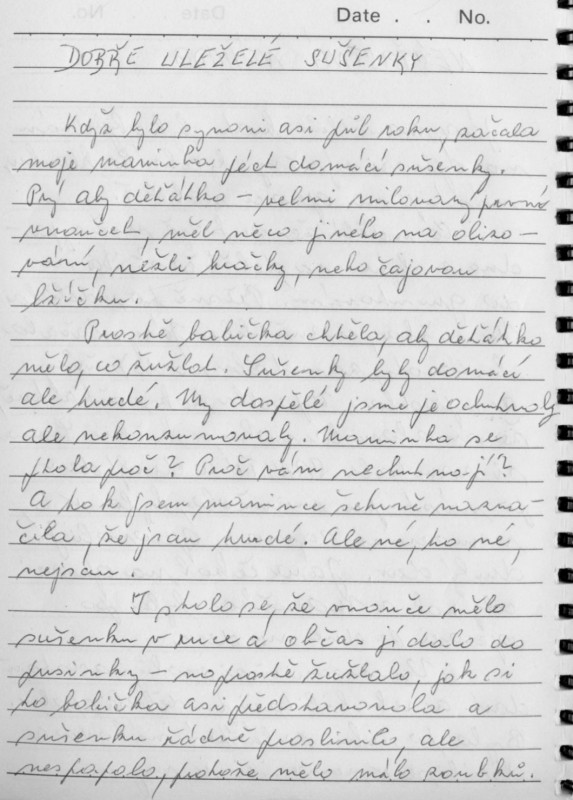 Date . . No.
DOBŘE ULEŽELÉ SUŠENKY
Když bylo synovi asi půl roku, začala
moje maminka péct domácí sušenky.
Prý aby děťátko – velmi milovaný první
vnouček, měl něco jiného na olizo-
vání, nežli hračky, nebo čajovou
lžičku.
Prostě babička chtěla, aby děťátko
mělo, co žužlat. Sušenky byly domácí
ale tvrdé. My dospělé jsme je ochutnaly
ale nekonzumovaly. Maminka se
ptala proč? Proč vám nechutnají?
A tak jsem mamince šetrně nazna-
čila, že jsou tvrdé. Ale né, to né,
nejsou.
I stalo se, že vnouče mělo
sušenku v ruce a občas jí dalo do
pusinky – no prostě žužlalo, jak si
to babička asi představovala a
sušenku řádně poslinilo, ale
nespapalo, protože mělo málo zoubků.